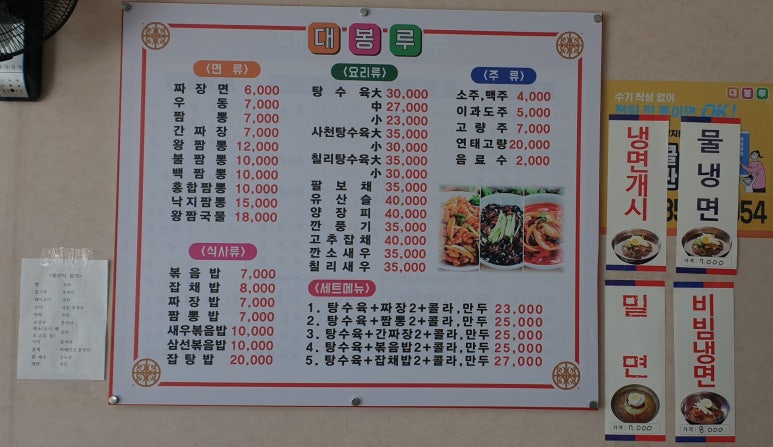 대봉루
〈면 류〉
짜 장 면 6,000
우 동 7,000
짬 뽕 7,000
간 짜 장 7,000
왕짬뽕 12,000
불짬뽕 10,000
백짬뽕 10,000
홍합짬뽕 10,000
낙지짬뽕 15,000
왕짬국물 18,000
〈식사류〉
볶음밥 7,000
잡채밥 8,000
짜장밥 7,000
짬뽕밥 7,000
새우볶음밥 10,000
삼선볶음밥 10,000
잡탕밥 20,000
〈요리류〉
탕 수 육 大 30,000
中 27,000
小 23,000
사천탕수육大 35,000
小 30,000
칠리탕수육大 35,000
小 30,000
팔 보 채 35,000
유 산 슬 40,000
양 장 피 40,000
깐 풍 기 35,000
고추잡채 40,000
깐소새우 35,000
칠리새우 35,000
〈주 류〉
소주,맥주 4,000
이과도주 5,000
고 량 주 7,000
연태고량 20,000
음 료 수 2,000
〈세트메뉴〉
1. 탕수육+짜장2+콜라,만두 23,000
2. 탕수육+짬뽕2+콜라,만두 25,000
3. 탕수육+간짜장2+콜라,만두 25,000
4. 탕수육+볶음밥2+콜라,만두 25,000
5. 탕수육+잡채밥2+콜라,만두 27,000
수기 작성 없이
OK!
대봉루
954
냉면개시
물냉면
가격: 7,000
밀면
가격: 7,000
비빔냉면
가격: 8,000